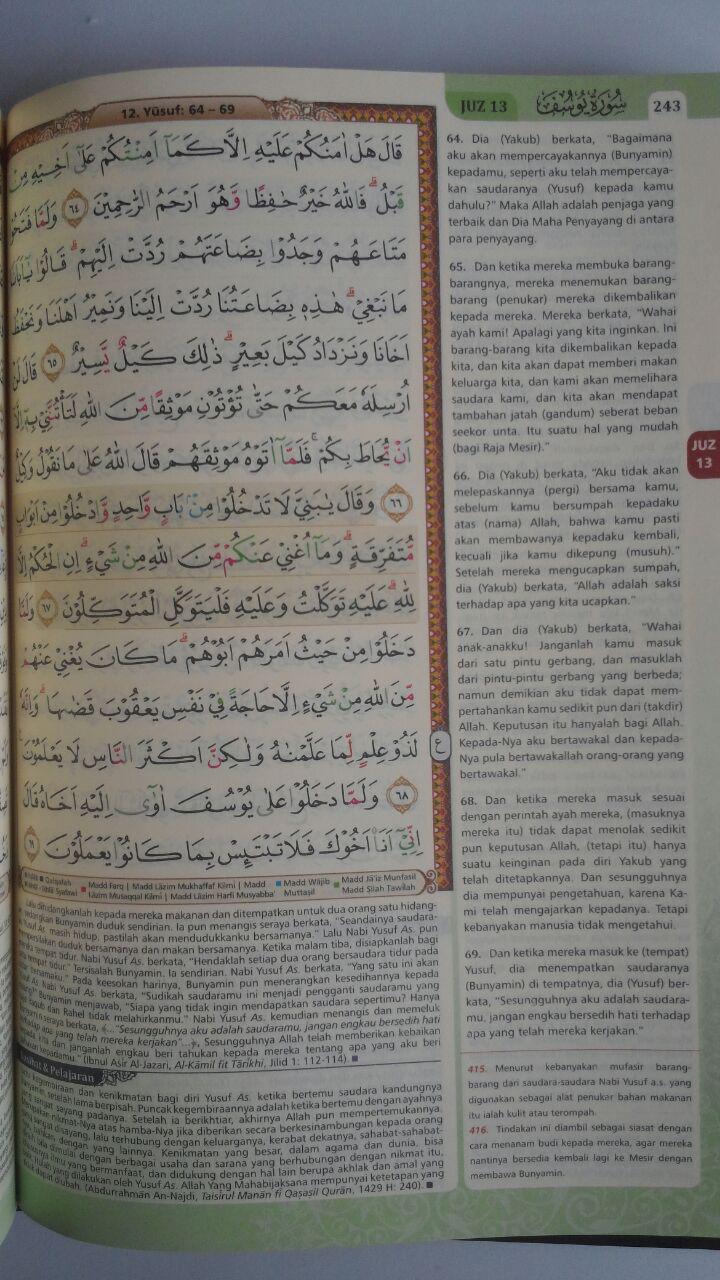 12. Yūsuf: 64 – 69
JUZ 13
سُورَةُ يُوسُفَ
243
قَالَ هَلْ اٰمَنُكُمْ عَلَيْهِ اِلَّا كَمَآ اَمِنْتُكُمْ عَلٰٓى اَخِيْهِ مِنْ
قَبْلُۗ فَاللّٰهُ خَيْرٌ حٰفِظًا وَّهُوَ اَرْحَمُ الرّٰحِمِيْنَ ٦٤ وَلَمَّا فَتَحُوْا
مَتَاعَهُمْ وَجَدُوْا بِضَاعَتَهُمْ رُدَّتْ اِلَيْهِمْۗ قَالُوْا يٰٓاَبَانَا
مَا نَبْغِيْۗ هٰذِهٖ بِضَاعَتُنَا رُدَّتْ اِلَيْنَا وَنَمِيْرُ اَهْلَنَا وَنَحْفَظُ
اَخَانَا وَنَزْدَادُ كَيْلَ بَعِيْرٍۗ ذٰلِكَ كَيْلٌ يَّسِيْرٌ ٦٥ قَالَ لَنْ
اُرْسِلَهٗ مَعَكُمْ حَتّٰى تُؤْتُوْنِ مَوْثِقًا مِّنَ اللّٰهِ لَتَأْتُنَّنِيْ بِهٖٓ اِلَّآ
اَنْ يُّحَاطَ بِكُمْۚ فَلَمَّآ اٰتَوْهُ مَوْثِقَهُمْ قَالَ اللّٰهُ عَلٰى مَا نَقُوْلُ وَكِيْلٌ
٦٦ وَقَالَ يٰبَنِيَّ لَا تَدْخُلُوْا مِنْۢ بَابٍ وَّاحِدٍ وَّادْخُلُوْا مِنْ اَبْوَابٍ
مُّتَفَرِّقَةٍۗ وَمَآ اُغْنِيْ عَنْكُمْ مِّنَ اللّٰهِ مِنْ شَيْءٍۗ اِنِ الْحُكْمُ اِلَّا
لِلّٰهِۗ عَلَيْهِ تَوَكَّلْتُ وَعَلَيْهِ فَلْيَتَوَكَّلِ الْمُتَوَكِّلُوْنَ ٦٧ وَلَمَّا
دَخَلُوْا مِنْ حَيْثُ اَمَرَهُمْ اَبُوْهُمْۗ مَا كَانَ يُغْنِيْ عَنْهُمْ
مِّنَ اللّٰهِ مِنْ شَيْءٍ اِلَّا حَاجَةً فِيْ نَفْسِ يَعْقُوْبَ قَضٰىهَاۗ وَاِنَّهٗ
لَذُوْ عِلْمٍ لِّمَا عَلَّمْنٰهُ وَلٰكِنَّ اَكْثَرَ النَّاسِ لَا يَعْلَمُوْنَ ع
٦٨ وَلَمَّا دَخَلُوْا عَلٰى يُوْسُفَ اٰوٰٓى اِلَيْهِ اَخَاهُ قَالَ
اِنِّيْٓ اَنَا۠ اَخُوْكَ فَلَا تَبْتَىِٕسْ بِمَا كَانُوْا يَعْمَلُوْنَ ٦٩
Qalqalah
Madd Farq | Madd Lāzim Mukhaffaf Kilmi | Madd
Lāzim Musaqqal Kilmi | Madd Lāzim Harfi Musyabba'
Madd Wājib
Muttaşil
Madd Jā'iz Munfasil
Madd Silah Tawīlah
Lalu dihidangkanlah kepada mereka makanan dan ditempatkan untuk dua orang satu hidang-
sedangkan Bunyamin duduk sendirian. Ia pun menangis seraya berkata, "Seandainya saudara-
Yusuf As. masih hidup, pastilah akan mendudukkanku bersamanya." Lalu Nabi Yusuf As. pun
duduk bersamanya dan makan bersamanya. Ketika malam tiba, disiapkanlah bagi
mereka tempat tidur. Nabi Yusuf As. berkata, "Hendaklah setiap dua orang bersaudara tidur pada
tempat tidur." Tersisalah Bunyamin. Ia sendirian. Nabi Yusuf As. berkata, "Yang satu ini akan
tidur bersamaku." Pada keesokan harinya, Bunyamin pun menerangkan kesedihannya kepada
Nabi Yusuf As. berkata, "Sudikah saudaramu ini menjadi pengganti saudaramu yang
Bunyamin menjawab, "Siapa yang tidak ingin mendapatkan saudara sepertimu? Hanya
Yaqub dan Rahel tidak melahirkanmu." Nabi Yusuf As. kemudian menangis dan memeluk
seraya berkata, ﴾..."Sesungguhnya aku adalah saudaramu, jangan engkau bersedih hati
terhadap apa yang telah mereka kerjakan"...﴿, Sesungguhnya Allah telah memberikan kebaikan
kita dan janganlah engkau beri tahukan kepada mereka tentang apa yang aku beri
kepadamu." (Ibnul Asir Al-Jazari, Al-Kāmil fit Tārīkhi, Jilid 1: 112-114). ■
& Pelajaran
kegembiraan dan kenikmatan bagi diri Yusuf As. ketika bertemu saudara kandungnya
setelah lama berpisah. Puncak kegembiraannya adalah ketika bertemu dengan ayahnya
yang sangat sayang padanya. Setelah ia berikhtiar, akhirnya Allah pun mempertemukannya.
nikmat-Nya atas hamba-Nya jika diberikan secara berkesinambungan kepada orang
yang sangat disayang, lalu terhubung dengan keluarganya, kerabat dekatnya, sahabat-sahabat-
dengan yang lainnya. Kenikmatan yang besar, dalam agama dan dunia, bisa
dimulai dengan berbagai usaha dan sarana yang berhubungan dengan nikmat itu,
ilmu yang bermanfaat, dan didukung dengan hal lain berupa akhlak dan amal yang
yang dilakukan oleh Yusuf As. Allah Yang Mahabijaksana mempunyai ketetapan yang
diubah. (Abdurrahmān An-Najdi, Taisīrul Manān fi Qaṣaṣil Qurān, 1429 H: 240). ■
64. Dia (Yakub) berkata, "Bagaimana
aku akan mempercayakannya (Bunyamin)
kepadamu, seperti aku telah mempercaya-
kan saudaranya (Yusuf) kepada kamu
dahulu?" Maka Allah adalah penjaga yang
terbaik dan Dia Maha Penyayang di antara
para penyayang.
65. Dan ketika mereka membuka barang-
barangnya, mereka menemukan barang-
barang (penukar) mereka dikembalikan
kepada mereka. Mereka berkata, "Wahai
ayah kami! Apalagi yang kita inginkan. Ini
barang-barang kita dikembalikan kepada
kita, dan kita akan dapat memberi makan
keluarga kita, dan kami akan memelihara
saudara kami, dan kita akan mendapat
tambahan jatah (gandum) seberat beban
seekor unta. Itu suatu hal yang mudah
(bagi Raja Mesir)."
66. Dia (Yakub) berkata, "Aku tidak akan
melepaskannya (pergi) bersama kamu,
sebelum kamu bersumpah kepadaku
atas (nama) Allah, bahwa kamu pasti
akan membawanya kepadaku kembali,
kecuali jika kamu dikepung (musuh)."
Setelah mereka mengucapkan sumpah,
dia (Yakub) berkata, "Allah adalah saksi
terhadap apa yang kita ucapkan."
67. Dan dia (Yakub) berkata, "Wahai
anak-anakku! Janganlah kamu masuk
dari satu pintu gerbang, dan masuklah
dari pintu-pintu gerbang yang berbeda;
namun demikian aku tidak dapat mem-
pertahankan kamu sedikit pun dari (takdir)
Allah. Keputusan itu hanyalah bagi Allah.
Kepada-Nya aku bertawakal dan kepada-
Nya pula bertawakallah orang-orang yang
bertawakal."
68. Dan ketika mereka masuk sesuai
dengan perintah ayah mereka, (masuknya
mereka itu) tidak dapat menolak sedikit
pun keputusan Allah, (tetapi itu) hanya
suatu keinginan pada diri Yakub yang
telah ditetapkannya. Dan sesungguhnya
dia mempunyai pengetahuan, karena Ka-
mi telah mengajarkan kepadanya. Tetapi
kebanyakan manusia tidak mengetahui.
69. Dan ketika mereka masuk ke (tempat)
Yusuf, dia menempatkan saudaranya
(Bunyamin) di tempatnya, dia (Yusuf) ber-
kata, "Sesungguhnya aku adalah saudara-
mu, jangan engkau bersedih hati terhadap
apa yang telah mereka kerjakan."
415. Menurut kebanyakan mufasir barang-
barang dari saudara-saudara Nabi Yusuf a.s. yang
digunakan sebagai alat penukar bahan makanan
itu ialah kulit atau terompah.
416. Tindakan ini diambil sebagai siasat dengan
cara menanam budi kepada mereka, agar mereka
nantinya bersedia kembali lagi ke Mesir dengan
membawa Bunyamin.
JUZ
13